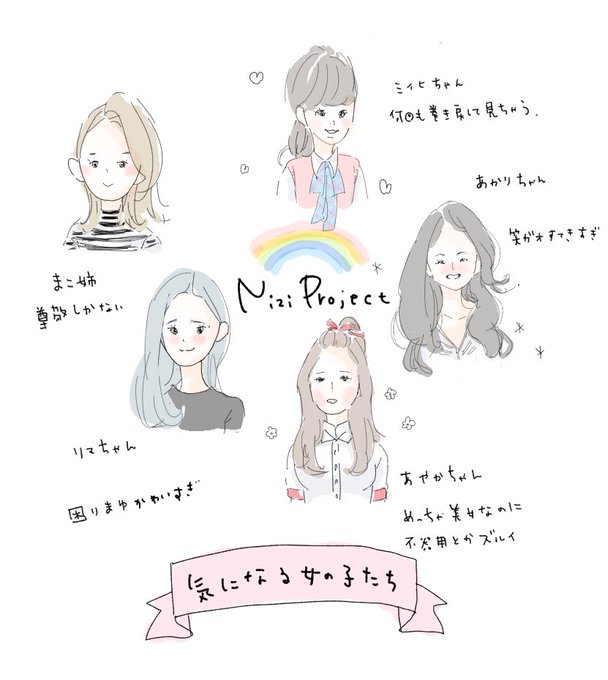 ミイヒちゃん
何回も巻き戻して見ちゃう.
あかりちゃん
笑がおすてきすぎ
まこ姉
尊敬しかない
Nizi Project
リマちゃん
困りまゆかわいすぎ
あやかちゃん
めっちゃ美女なのに
不器用とかズルイ
気になる女の子たち